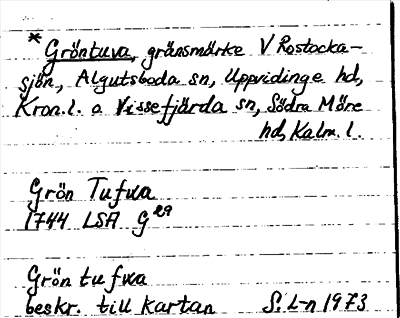 * Gröntuva, gränsmärke V Rostocka-
sjön, Algutsboda sn, Uppvidinge hd,
Kron.l. o Vissefjärda sn, Södra Möre
hd, Kalm. l.
Grön Tufwa
1744 LSA G 29
Grön tufwa
beskr. till kartan S. L-n 1973